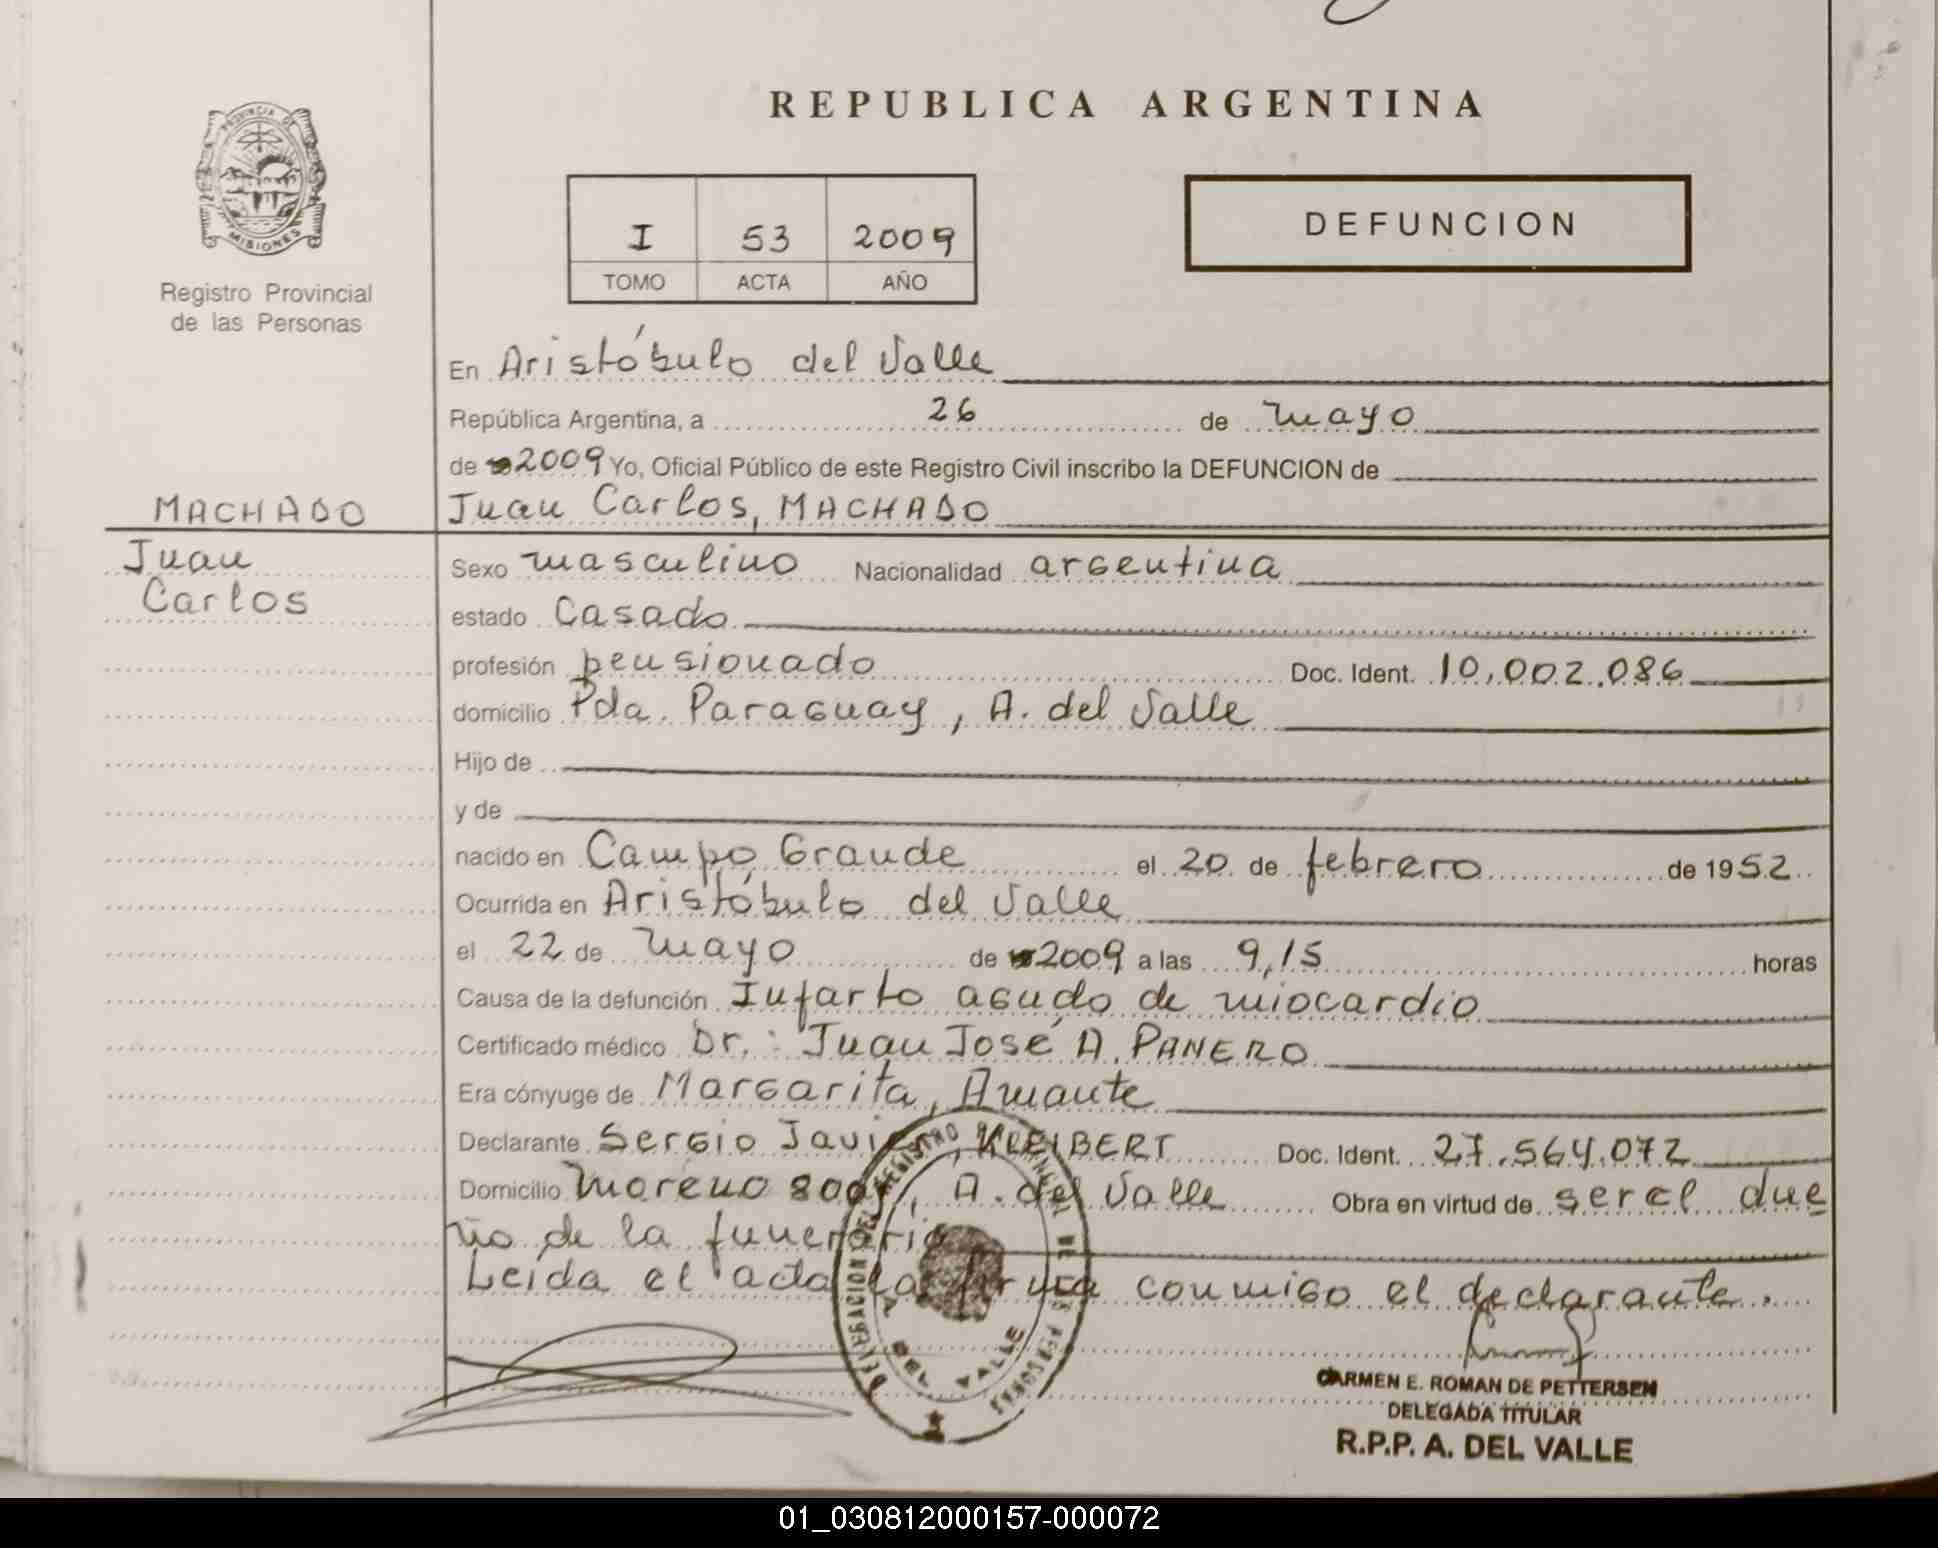 REPUBLICA ARGENTINA
PROVINCIA D
MISIONES
Registro Provincial
de las Personas
I 53 2009
TOMO ACTA AÑO
DEFUNCION
En Aristóbulo del Valle
República Argentina, a 26 de mayo
de 2009 Yo, Oficial Público de este Registro Civil inscribo la DEFUNCION de
MACHADO Juan Carlos, MACHADO
Juan
Carlos
Sexo masculino Nacionalidad argentina
estado Casado
profesión pensionado Doc. Ident. 10.002.086
domicilio Pda. Paraguay, A. del Valle
Hijo de
y de
nacido en Campo Grande el 20 de febrero de 1952
Ocurrida en Aristóbulo del Valle
el 22 de mayo de 2009 a las 9,15 horas
Causa de la defunción Infarto agudo de miocardio
Certificado médico Dr.: Juan José A. PANERO
Era cónyuge de Margarita, Amante
Declarante Sergio Javier, KLEIBERT Doc. Ident. 27.564.072
Domicilio Moreno 800, A. del Valle Obra en virtud de ser el due
ño de la funeraria
Leída el acta la firma conmigo el declarante.
DELEGACION DEL REGISTRO PROVINCIAL DE LAS PERSONAS
A. DEL VALLE
CARMEN E. ROMAN DE PETTERSEN
DELEGADA TITULAR
R.P.P. A. DEL VALLE
01_030812000157-000072